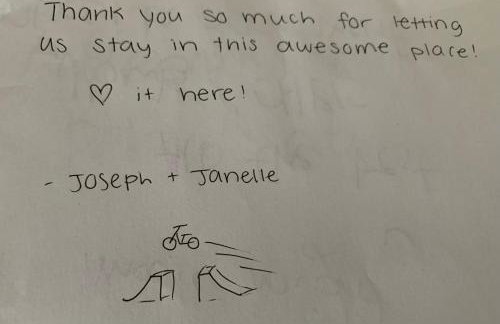 Thank you so much for letting
us stay in this awesome place!
♡ it here!
- Joseph + Janelle